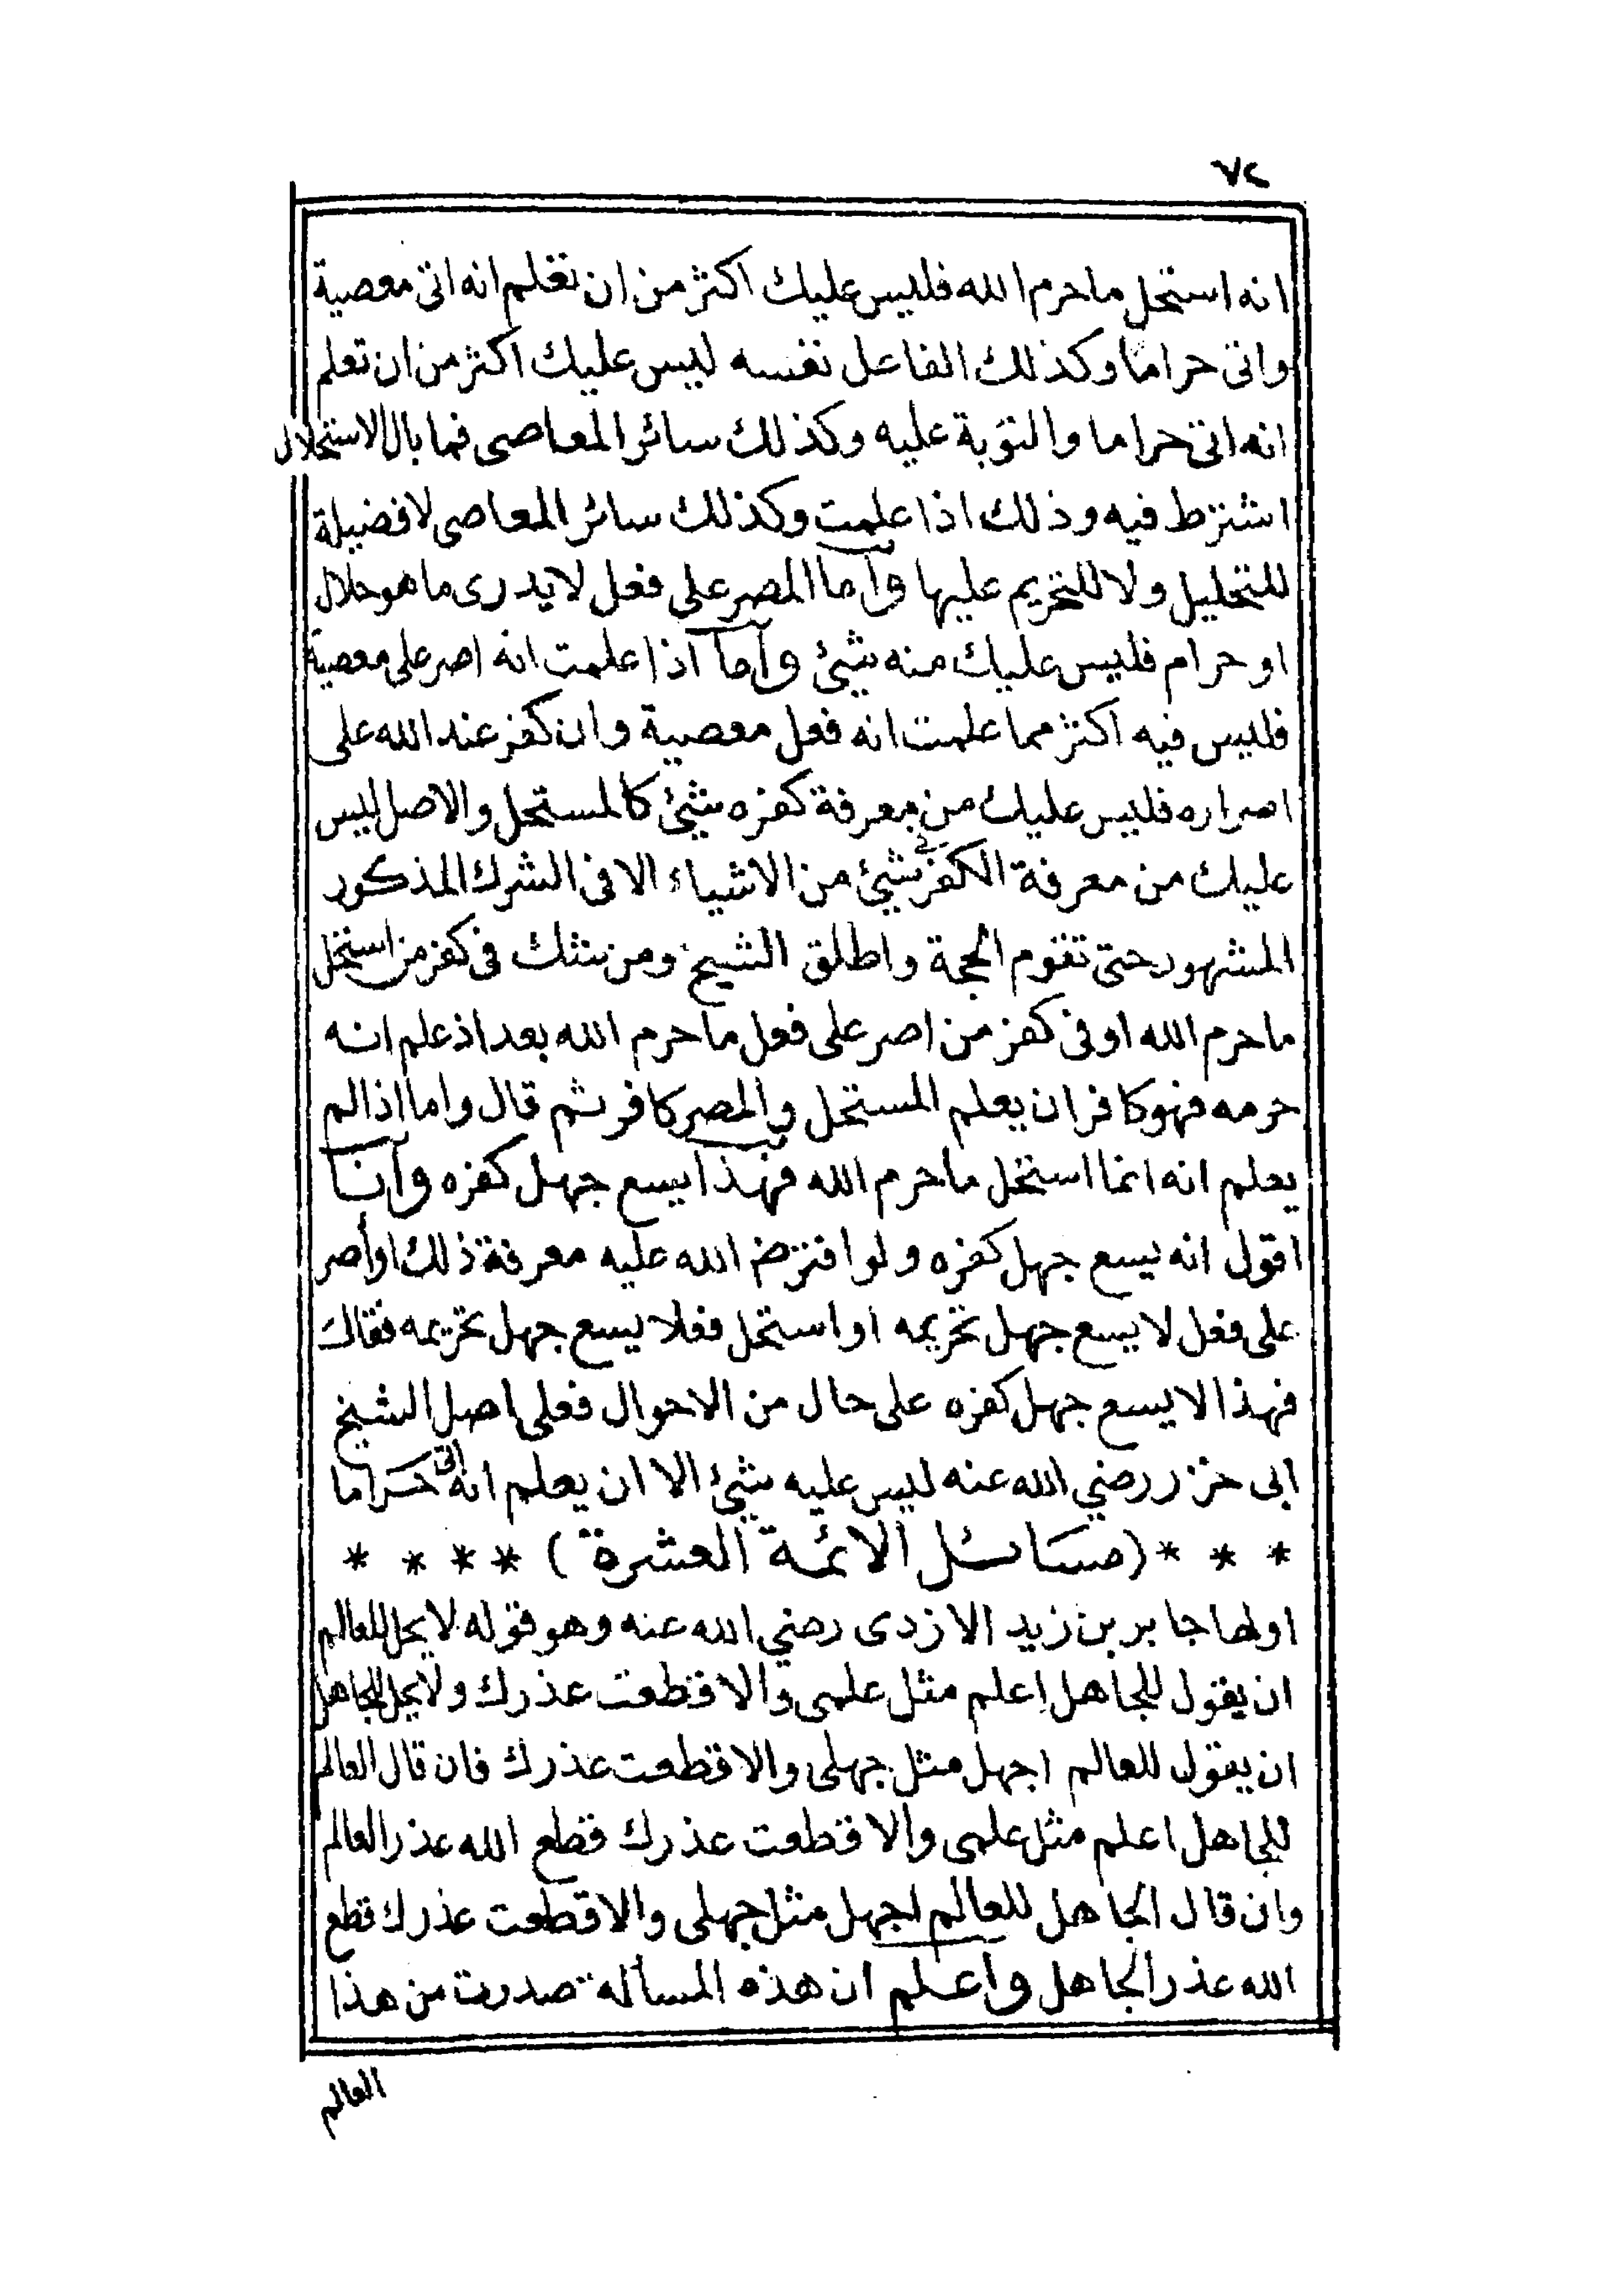 ٧٢
انه استحل ما حرم الله فليس عليك اكثر من ان تعلم انه اتى معصية
واتى حراما وكذلك الفاعل نفسه ليس عليك اكثر من ان تعلم
انه اتى حراما والتوبة عليه وكذلك سائر المعاصى فما بال الاستحلال
اشترط فيه وذلك اذا علمت وكذلك سائر المعاصى لا فضيلة
للتحليل ولا للتحريم عليها وأما المصر على فعل لا يدرى ما هو حلال
او حرام فليس عليك منه شئ وأما اذا علمت انه اصر على معصية
فليس فيه اكثر مما علمت انه فعل معصية وان كفر عند الله على
اصراره فليس عليك من معرفة كفره شئ كالمستحل والاصل ليس
عليك من معرفة الكفر في شئ من الاشياء الا فى الشرك المذكور
المشهور حتى تقوم الحجة واطلق الشيخ ومن شك فى كفر من استحل
ما حرم الله او فى كفر من اصر على فعل ما حرم الله بعد اذ علم انه
حرمه فهو كافر ان يعلم المستحل والمصر كافر ثم قال واما اذا لم
يعلم انه انما استحل ما حرم الله فهذا يسع جهل كفره وأنا
اقول انه يسع جهل كفره ولو افترض الله عليه معرفة ذلك اوأصر
على فعل لا يسع جهل تحريمه او استحل فعلا يسع جهل تحريمه فقال
فهذا لا يسع جهل كفره على حال من الاحوال فعلى اصل الشيخ
ابى خزر رضي الله عنه ليس عليه شئ الا ان يعلم انه اتى حراما
* * * (مسائل الائمة العشرة) * * * *
اولها جابر بن زيد الازدى رضي الله عنه وهو قوله لا يحل للعالم
ان يقول للجاهل اعلم مثل علمى والا قطعت عذرك ولا يحل للجاهل
ان يقول للعالم اجهل مثل جهلى والا قطعت عذرك فان قال العالم
للجاهل اعلم مثل علمى والا قطعت عذرك قطع الله عذر العالم
وان قال الجاهل للعالم اجهل مثل جهلى والا قطعت عذرك قطع
الله عذر الجاهل واعلم ان هذه المسألة صدرت من هذا
العالم